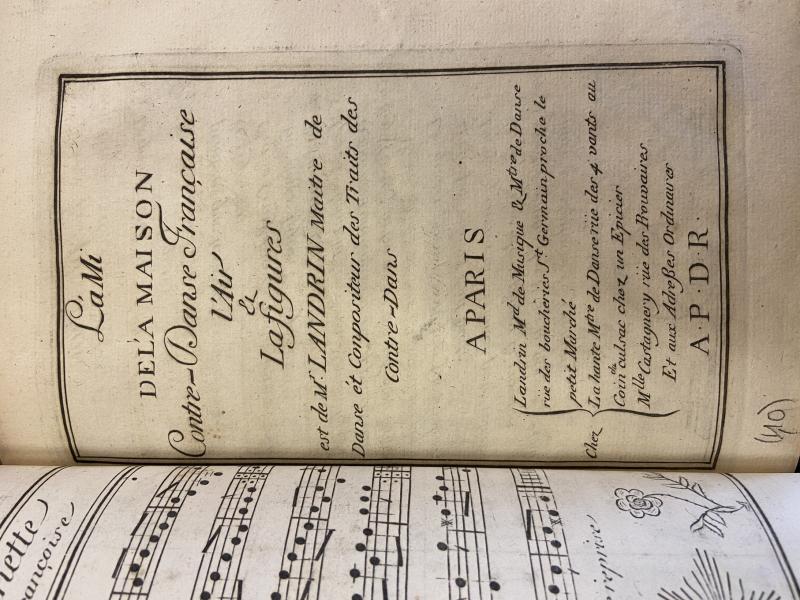 L'aMi
DEL'A MAISON
Contre-Danse Française
l'Air
&
La figures
est de Mr. LANDRIN Maitre de
Danse ét Conpositeur des Traits des
Contre-Dans
A PARIS
Chez
Landrin Md. de Musique & Mtre de Danse
rue des boucheries St Germain proche le
petit Marché
La hante Mtre de Danse rüe des 4 vants au
Coin du culsac chez un Epicier
Mlle Castagnery rüe des Prouvaires
Et aux Adreßes Ordinaires
A·P·D·R·
(40)
nette
ançoise
reprise